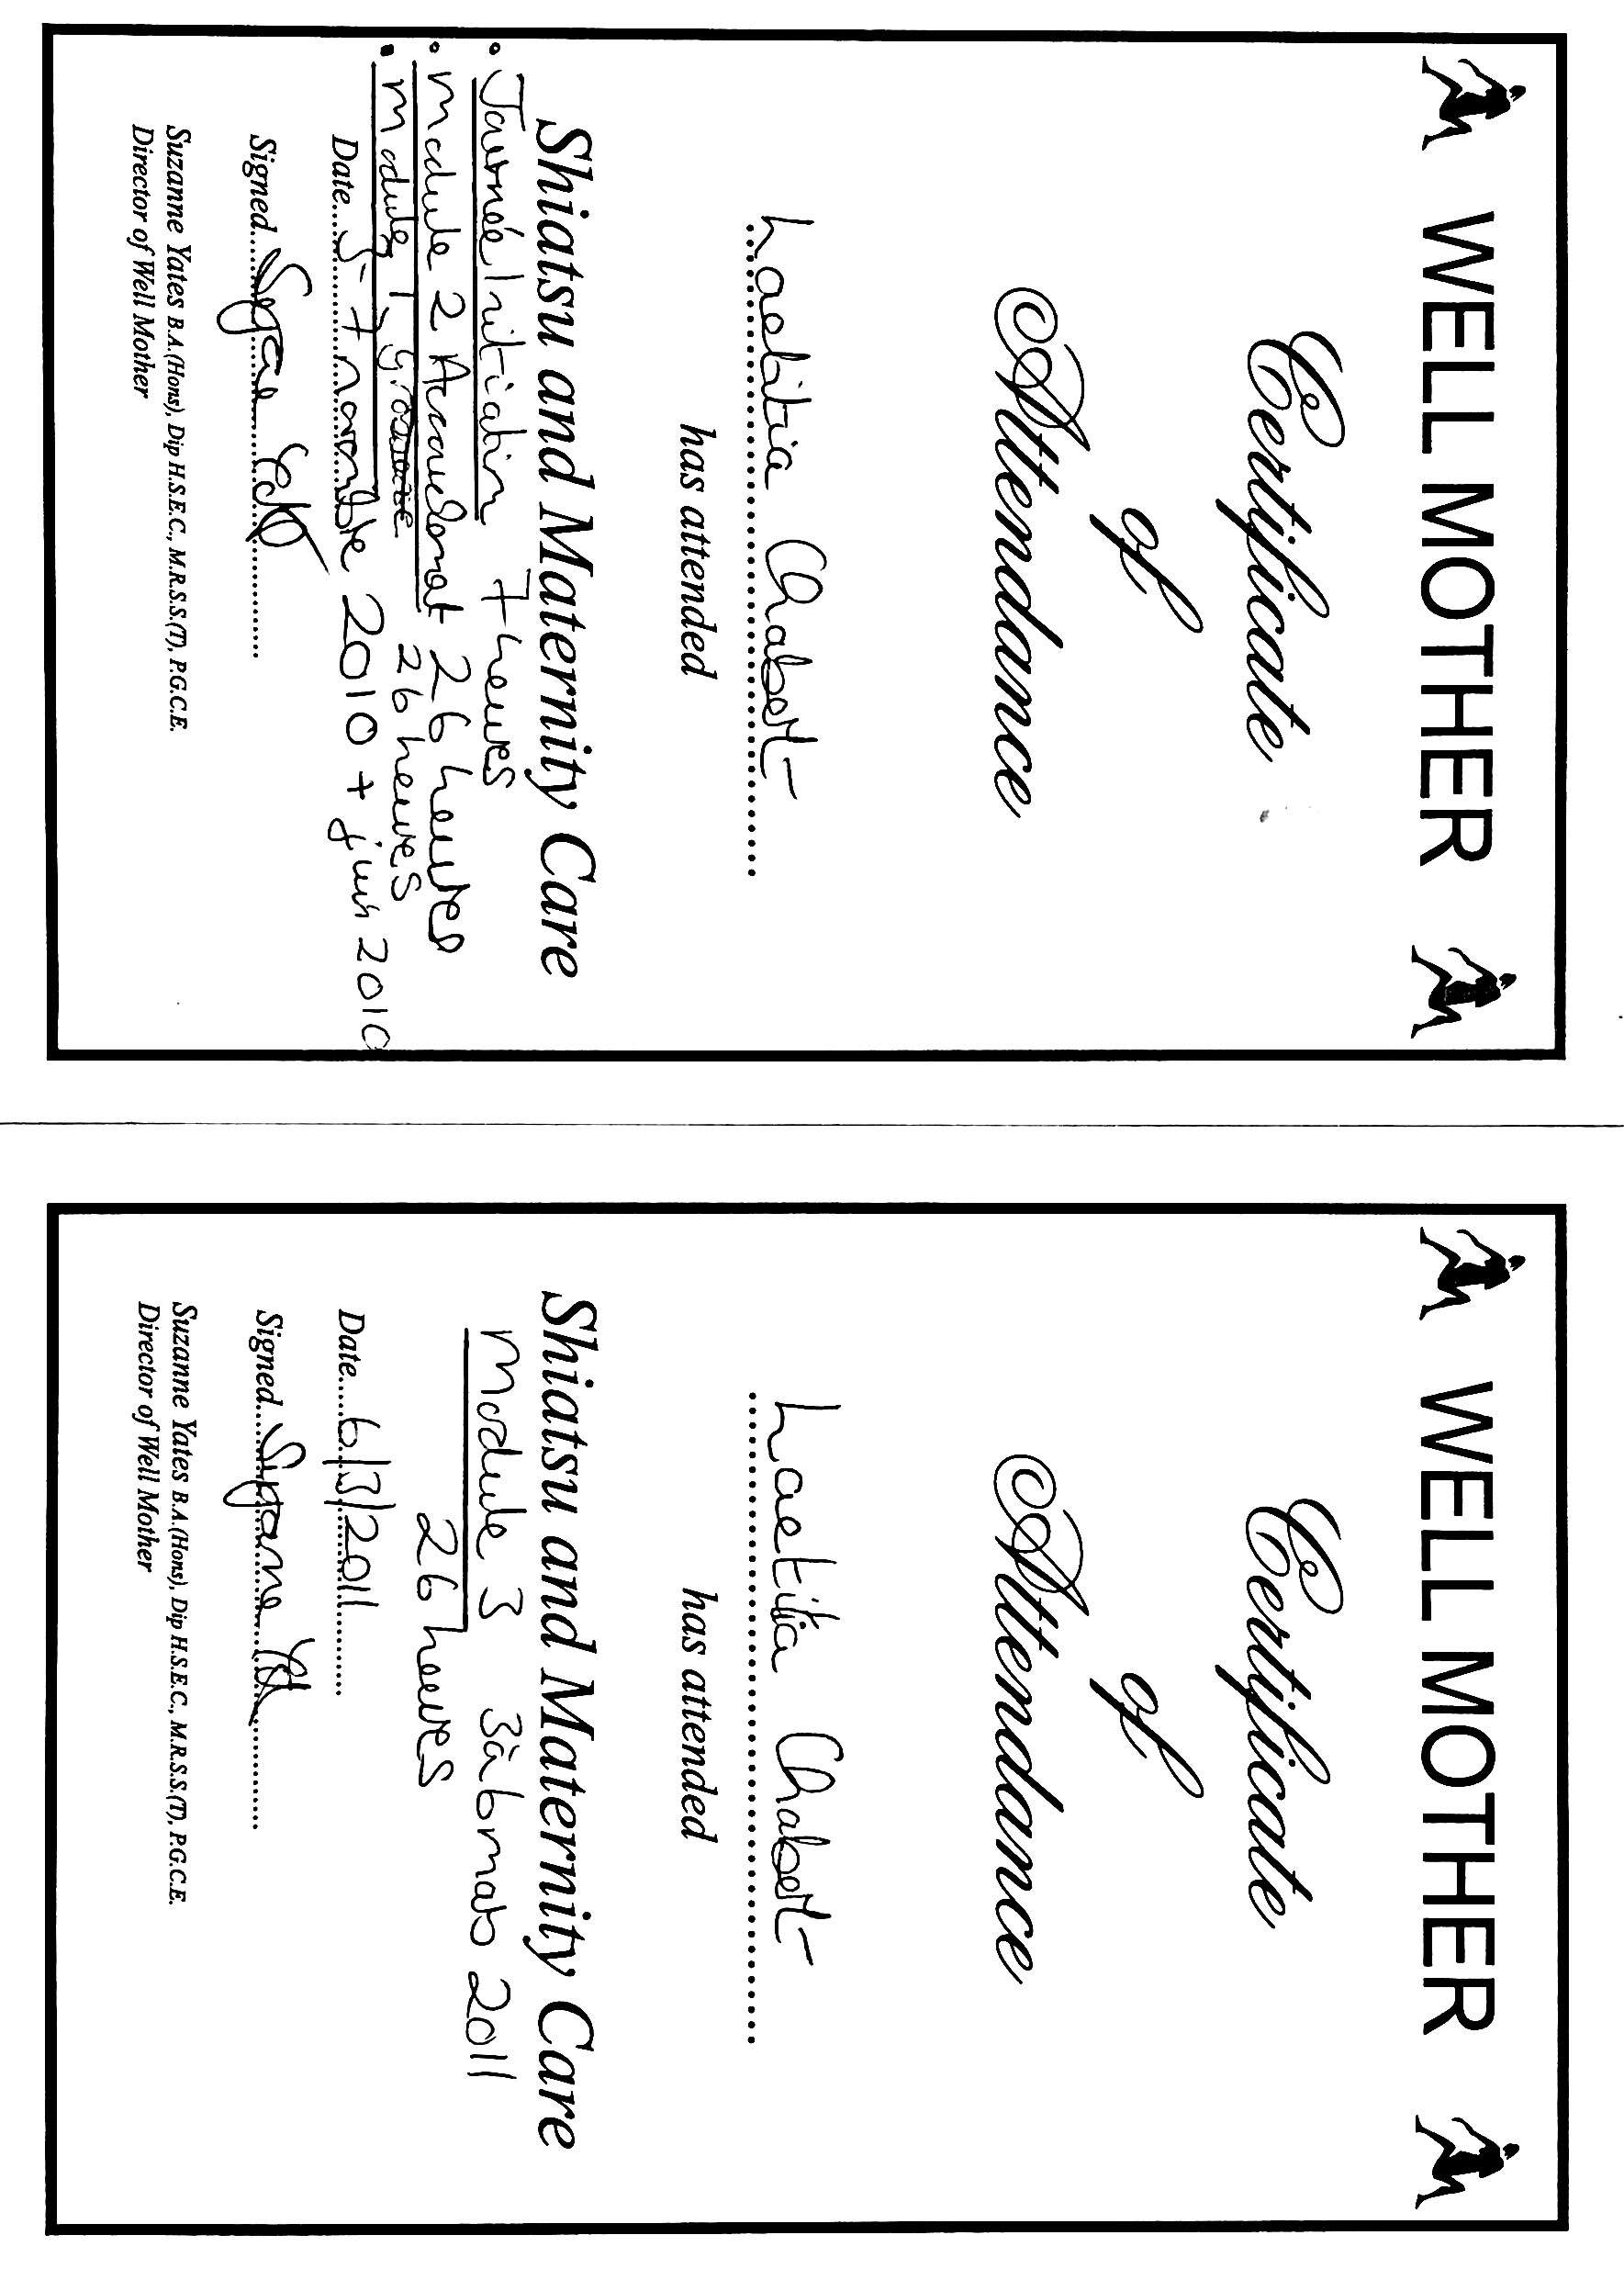 WELL MOTHER
Certificate
of
Attendance
Laetitia Chabert
has attended
Shiatsu and Maternity Care
• Journée Initiation 7 heures
• Module 2 Accouchement 26 heures
• Module 1, grossesse 26 heures
Date.....5-7 novembre 2010 + juin 2010
Signed
Suzanne Yates B.A.(Hons), Dip H.S.E.C., M.R.S.S.(T), P.G.C.E.
Director of Well Mother
WELL MOTHER
Certificate
of
Attendance
Laetitia Chabert
has attended
Shiatsu and Maternity Care
Module 3 3 à 6 mars 2011
26 heures
Date.....6/3/2011
Signed
Suzanne Yates B.A.(Hons), Dip H.S.E.C., M.R.S.S.(T), P.G.C.E.
Director of Well Mother